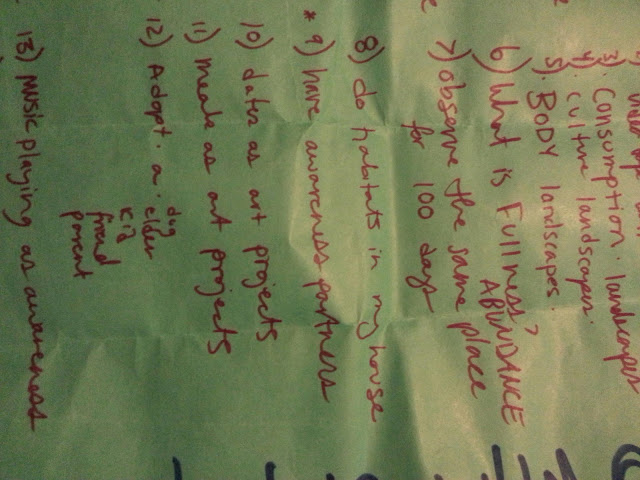 3) Consumption. landscapes
4) Culture landscapes.
5) BODY landscapes.
6) What is Fullness?
ABUNDANCE
7) observe the same place
for 100 days
8) do habitats in my house
* 9) have awareness partners
10) dates as art projects
11) meals as art projects
12) Adopt. a. dog
elder
kid
friend
parent
13) Music playing as awareness